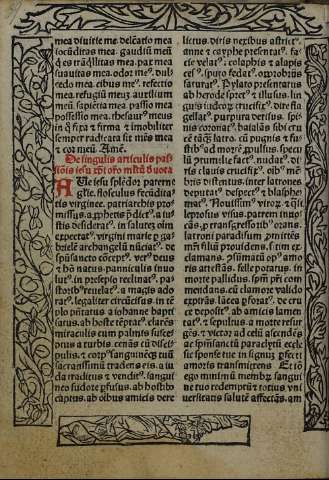 mea diuitie mee delectatio mea
iocūditas mea. gaudiū meū
quies trāq̄llitas mea. pax mea
suauitas mea. odor meꝰ. dul
cedo mea. cibus meꝰ. refectio
mea. refugiū meū. auxiliū
meū. sapiētia mea. possessio mea. thesaurꝰ meus
in q̄ fixa et firma et imobiliter
semper radicata sit mēs mea
et cor meū. Amē.
De singulis articulis pas
siōis iesu xp̄i oro mltū deuota
Aue iesu splēdor paterne
glie. flosculus fecūdita
tis virginee. patriarchis pro
missus. a xphetis p̄dictꝰ. a iu
stis desideratꝰ. in salutez oīm
expectatꝰ. virgini marie p̄ ga
brielē archangelū nūciatꝰ. de
spū sancto cōceptꝰ. verꝰ deus
et hō natus. pannículis inuo
lutꝰ. in presepio reclinatꝰ. pa
storibꝰ reuelatꝰ. a magis ado
ratꝰ. legaliter circūcisus. in tē
plo p̄ntatus. a iohanne bapti
satus. ab hoste tēptatꝰ. clarēs
miraculis. cum palmis susce
ptus a turbis. cenās cū disci
pulis. et corpꝰ sanguinēq̄ tuū
sacratissimū tradens eis. a iu
da traditus et venditꝰ. sangui
neo sudore pfusus. ab hostibꝰ
captus. ab oibus amicis dere
lictus. diris nexibus astrictꝰ.
anne et cayphe presentatꝰ. fa
cie velatꝰ. colaphis et alapis
cesꝰ. sputo fedatꝰ. opprobriis
saturatꝰ. pylato presentatus
ab herode spretꝰ et illusus. lin
guis iudeorꝰ crucifixꝰ. dire fla
gellatꝰ. purpura vestitus. spi
nis coronatꝰ. baiulās tibi cru
cē
stē ad mortē. pulsus. specu
lū prius illic factꝰ. nudatꝰ. di
ris clauis crucifixꝰ. oīb mē
bris distensus. inter latrones
reputatꝰ. despectꝰ et blasphe
matꝰ. Nouissimꝰ virorꝰ. et q̄si
leprosus visus. patrem inuo
cans. p trāsgressoribꝰ orans.
latroni paradisum. mittēs
mr̄i filiū prouidens. sitim ex
clamans.
amo
ris attestās. felle potatus. in
morte pallidus. spm pr̄i com
mendans. cū clamore valido
expirās. lācea pforatꝰ. de cru
ce depositꝰ. ab amicis lamen
tatꝰ et sepultus. a morte resur
gēs. et victor ad celū ascendēs
ac spm sanctū paraclytū eccle
sie sponse tue in signuz pfecti
amoris transmittens. Et si
ego minimū membrꝰ sangui
ne tuo redemptū et totus vni
uersitatis salutē affectās. am